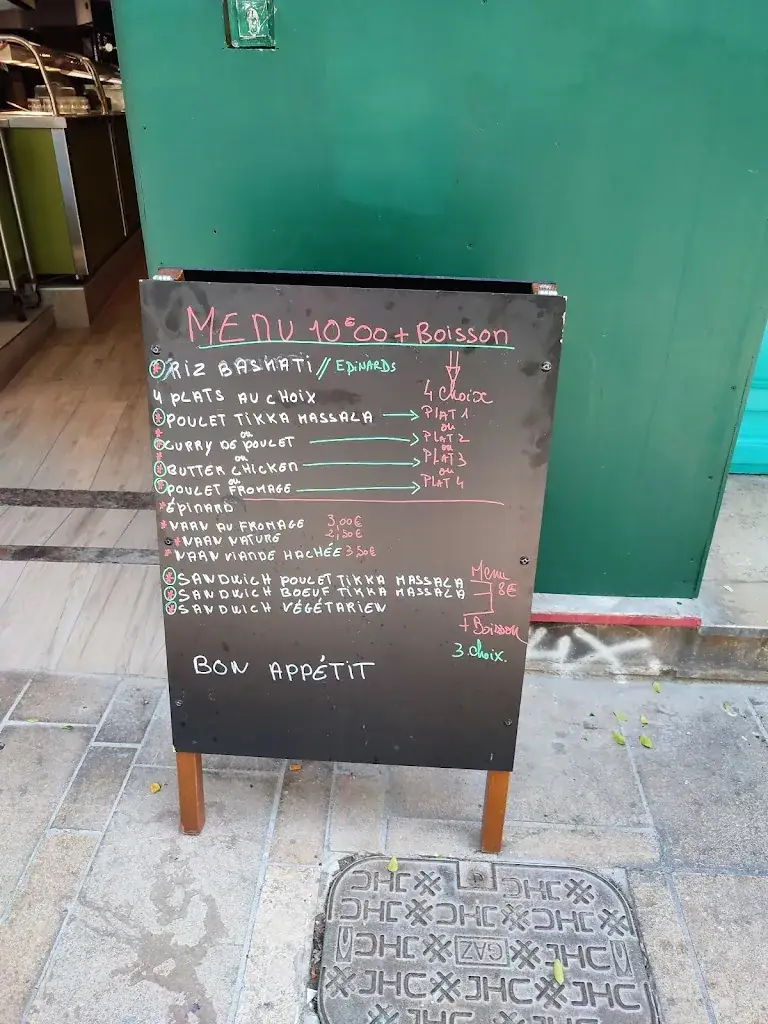 MENU 10€00 + Boisson
* RIZ BASMATI // EPINARDS
4 PLATS AU CHOIX
4 choix
* POULET TIKKA MASSALA → PLAT 1
* ou ou
* CURRY DE POULET → PLAT 2
* ou ou
* BUTTER CHICKEN → PLAT 3
ou ou
* POULET FROMAGE → PLAT 4
* ÉPINARD
* NAAN AU FROMAGE 3,00€
* NAAN NATURE 2,50€
* NAAN VIANDE HACHÉE 3,50€
Menu
* SANDWICH POULET TIKKA MASSALA
8€
* SANDWICH BOEUF TIKKA MASSALA
* SANDWICH VÉGÉTARIEN
+ Boisson
3 choix.
BON APPÉTIT
JHC JHC
JHC JHC
JHC GAZ JHC
JHC JHC
JHC JHC